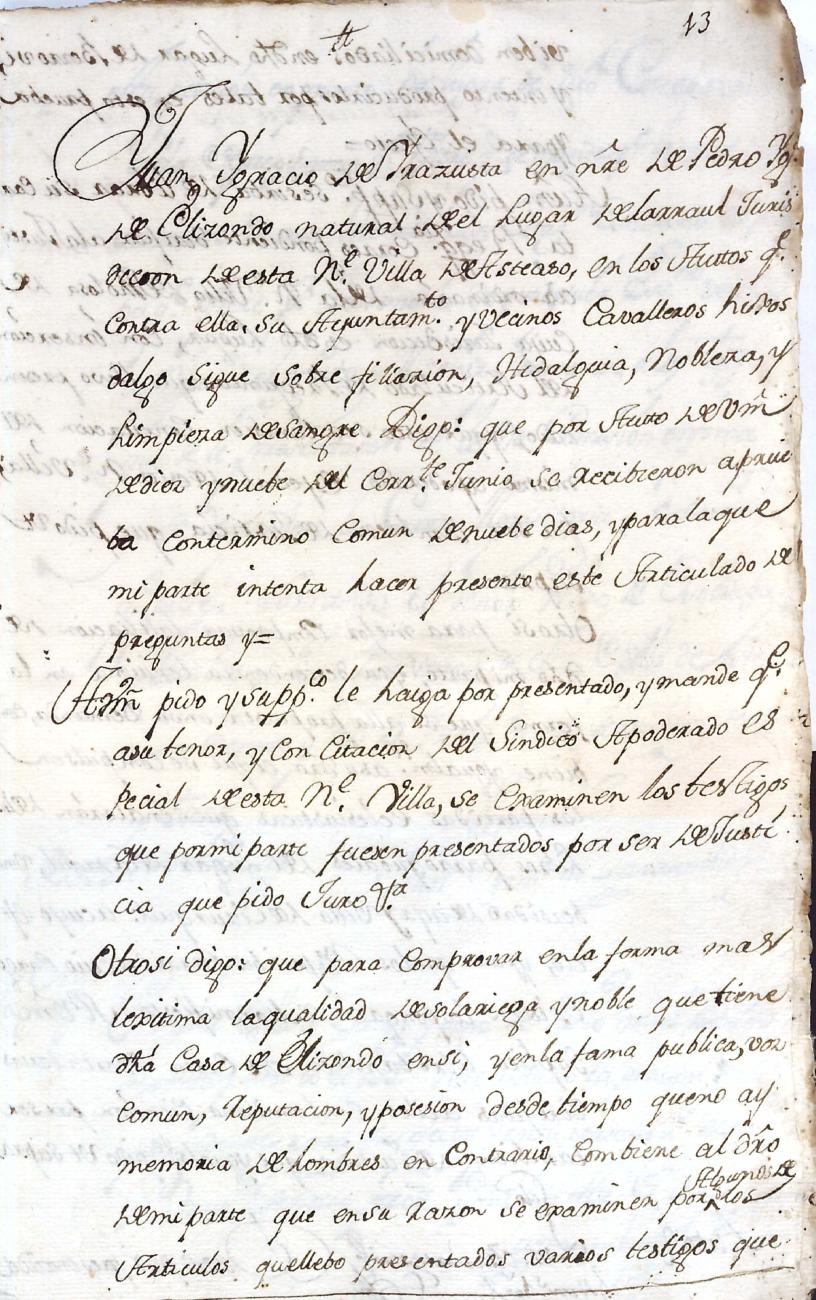 13
Juan Ygnacio de Yrazusta en nr̃e de Pedro Yg.
de Elizondo natural de el Lugar de Larraul Juris
diccion de esta N.ᵉ Villa de Asteasu, en los Auttos q.ᵉ
contra ella, su Ayuntam.ᵗᵒ y Vecinos Cavalleros hijos
dalgo sigue sobre filiazion, Hidalguia, Nobleza, y
Limpieza de Sangre Digo: que por Autto de Vm̃
de diez y nuebe del Corr.ᵗᵉ Junio se recibieron a prue
ba con termino comun de nuebe dias, y para la que
mi parte intenta hacer presento este Articulado de
preguntas y=
A Vm̃ pido y supp.ᶜᵒ le haiga por presentado, y mande q.ᵉ
a su tenor, y con citacion del Sindico Apoderado es
pecial de esta N.ᵉ Villa, se examinen los testigos
que por mi parte fuesen presentados por ser de Justi
cia que pido Juro V.ᵃ
Otrosi digo: que para comprovar en la forma mas
lexitima la qualidad de solariega y noble que tiene
dhã Casa de Elizondo en si, y en la fama publica, voz
comun, reputacion, y posesion desde tiempo que no ay
memoria de hombres en contrario, combiene al dr̃o
de mi parte que en su razon se examinen por ^ Algunos de los
Articulos que llebo presentados varios testigos que